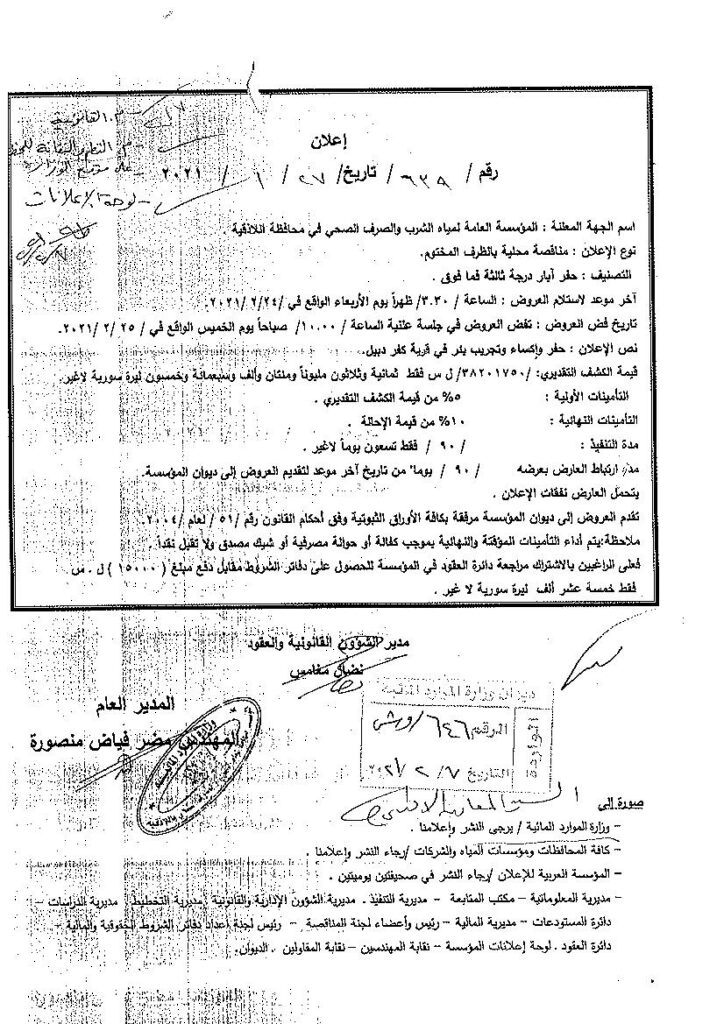 م. القانونية
على موقع الوزارة
- لوحة الإعلانات
إعلان
رقم / ٦٣٩ / تاريخ / ٢٧ / ١ / ٢٠٢١
اسم الجهة المعلنة : المؤسسة العامة لمياه الشرب والصرف الصحي في محافظة اللاذقية .
نوع الإعلان : مناقصة محلية بالظرف المختوم.
التصنيف : حفر آبار درجة ثالثة فما فوق .
آخر موعد لاستلام العروض : الساعة / ٣.٣٠/ ظهراً يوم الأربعاء الواقع في /٢/٢٤/ ٢٠٢١.
تاريخ فض العروض : تفض العروض في جلسة علنية الساعة / ١٠.٠٠/ صباحاً يوم الخميس الواقع في / ٢٥ /٢ /٢٠٢١.
نص الإعلان : حفر وإكساء وتجريب بئر في قرية كفر دبيل.
قيمة الكشف التقديري: /٣٨٢٠١٧٥٠/ ل س فقط ثمانية وثلاثون مليوناً ومئتان وألف وسبعمائة وخمسون ليرة سورية لاغير.
التأمينات الأولية : ٥% من قيمة الكشف التقديري .
التأمينات النهائية : ١٠% من قيمة الإحالة .
مدة التنفيذ : / ٩٠ / فقط تسعون يوماً لاغير .
مدة ارتباط العارض بعرضه / ٩٠ / يوماً من تاريخ آخر موعد لتقديم العروض إلى ديوان المؤسسة.
يتحمل العارض نفقات الإعلان .
تقدم العروض إلى ديوان المؤسسة مرفقة بكافة الأوراق الثبوتية وفق أحكام القانون رقم / ٥١ / لعام /٢٠٠٤ .
ملاحظة:يتم أداء التأمينات المؤقتة والنهائية بموجب كفالة أو حوالة مصرفية أو شيك مصدق ولا تقبل نقداً .
فعلى الراغبين بالاشتراك مراجعة دائرة العقود في المؤسسة للحصول على دفاتر الشروط مقابل دفع مبلغ ( ١٥٠٠٠ ) ل . س
فقط خمسة عشر ألف ليرة سورية لا غير .
مدير الشؤون القانونية والعقود
نضال مغامس
المدير العام
المهندس مضر فياض منصورة
ديوان وزارة الموارد المائية
الواردة
الرقم ٦٤٦
التاريخ ٧ / ٢ / ٢٠٢١
صورة إلى
- وزارة الموارد المائية / يرجى النشر وإعلامنا .
- كافة المحافظات ومؤسسات المياه والشركات /رجاء النشر وإعلامنا .
- المؤسسة العربية للإعلان /رجاء النشر في صحيفتين يوميتين .
- مديرية المعلوماتية – مكتب المتابعة - مديرية التنفيذ . مديرية الشؤون الإدارية والقانونية . مديرية التخطيط . مديرية الدراسات –
دائرة المستودعات – مديرية المالية – رئيس وأعضاء لجنة المناقصة – رئيس لجنة إعداد دفاتر الشروط الحقوقية والمالية –
دائرة العقود . لوحة إعلانات المؤسسة – نقابة المهندسين – نقابة المقاولين . الديوان.